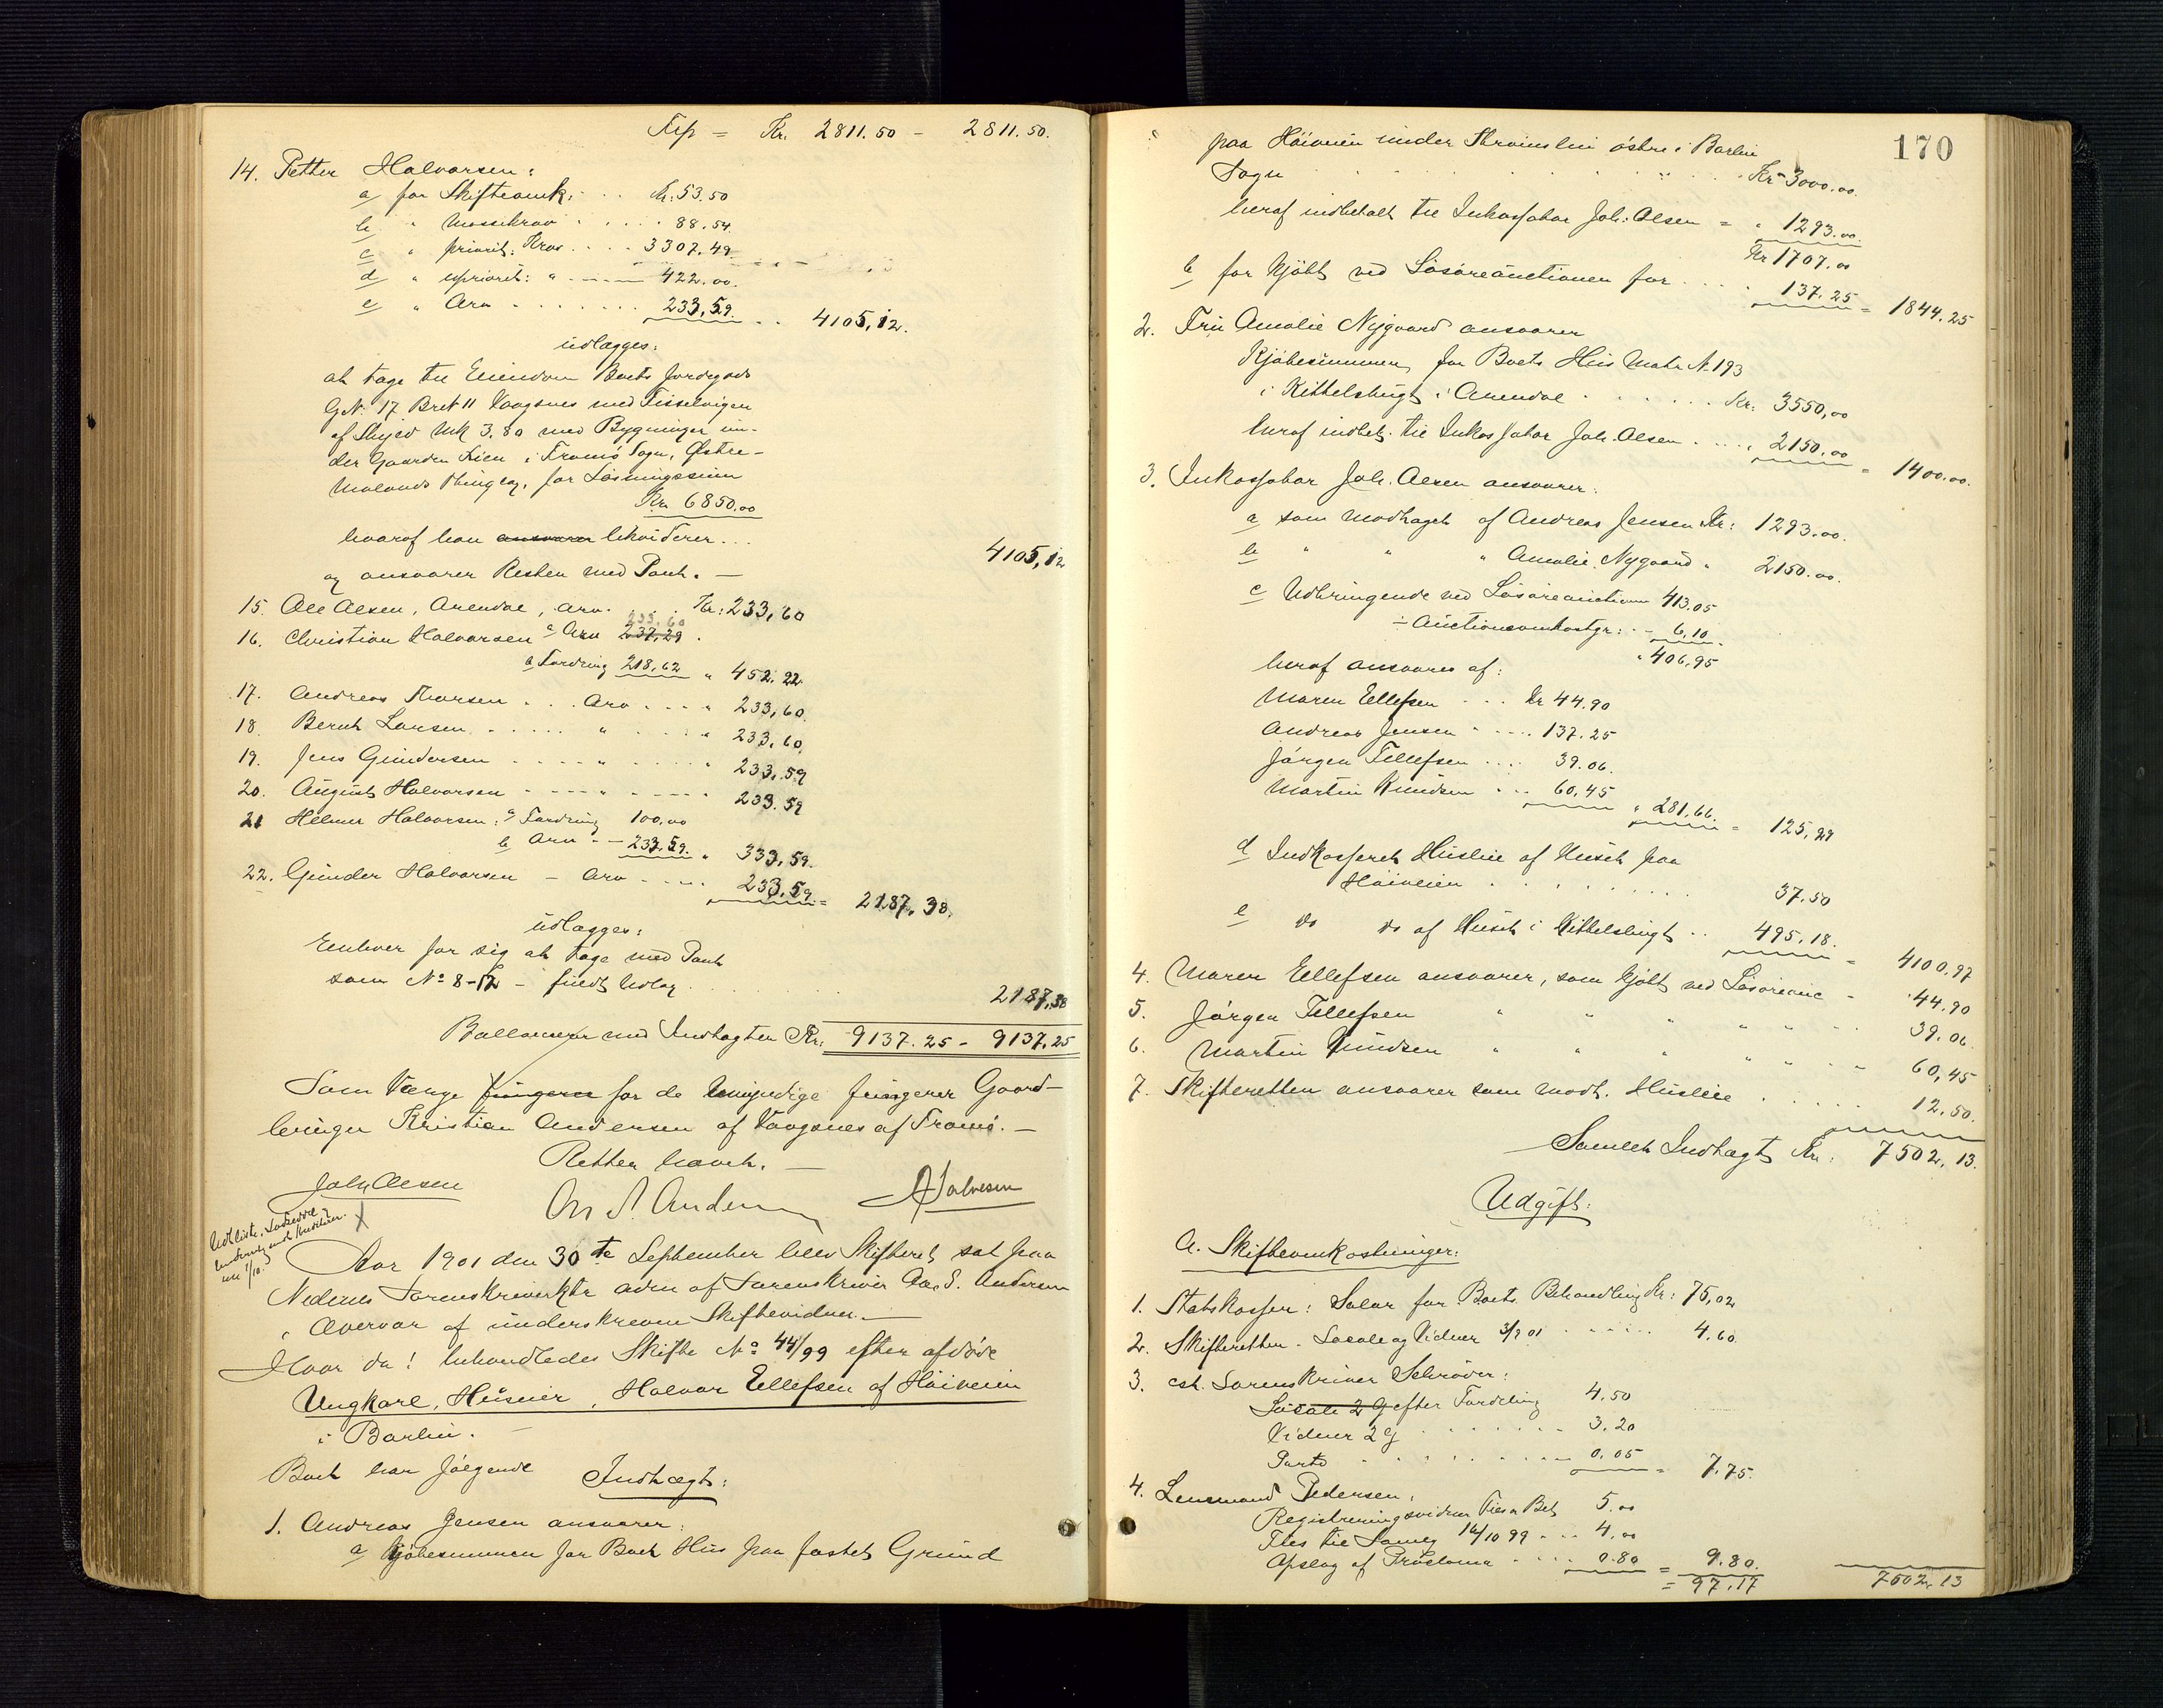 Trsp = Kr. 2811.50 - 2811.50.
14. Petter Halvorsen:
a for Skifteomk: . . Kr: 53.50
b " Massekrav . . . . 88.54.
c " priorit: Krav . . . . 3307.49.
d " uprioret: " . ---- 422.00.
e " Arv . . . . . . . 233,59. . . 4105,12.
udlægges:
at tage til Eiendom Boets Jordegods
GN: 17 BrN 11 Vaagsnes med Tisselvigen
af Skyld Mk 3.80 med Bygninger un-
der Gaarden Lien i Tromö Sogn, Østre-
Molands Thinglag, for Løsningssum
Kr. 6850.00
hvoraf han ansvarer likviderer . . . 4105,12
og ansvarer Resten med Pant. —
15. Ole Olsen, Arendal, Arv. . . . Kr: 233,60
233.60
16. Christian Halvorsen a Arv 237,29 .
b Fordring 218,62 " 452.22
17. Andreas Thorsen . . . Arv . . . . " 233,60.
18. Bernt Larsen . . . . . " . . . . . " 233.60.
19. Jens Gundersen . . . . . " . . . . " 233.59
20. August Halvorsen - - - - " - - - - . 233.59
21 Helmer Halvorsen: a Fordring 100,00
b Arv . - - 233.59. " 333,59.
22. Gunder Halvorsen - Arv . . . . 233,59 = 2187.38.
udlægges:
Enhver for sig at tage med Pant
som No 8-12 - fuldt Udlæg . . . . . 2187,38
Ballancerer med Indtægten Kr: 9137.25 - 9137.25
Som Værge fungerer for de Umyndige fungerer Gaard-
bruger Kristian Andersen af Vaagsnes af Tromö. —
Retten hævet. —
Joh. Olsen
Aa S. Andersen
A Halvesen
Udliste, Lodsedle
Aar 1901 den 30te September blev Skifteret sat paa
Nedenes Sorenskriverktr adm af Sorenskriver Aa. S. Andersen
i Overvær af underskrevne Skiftevidner. —
Hvor da! behandledes Skifte No 44/99 efter afdøde
Ungkarl, Huseier, Halvor Ellefsen af Höiveien
i Barbu. —
Boet har følgende Indtægt:
1. Andreas Jensen ansvarer:
a Kjøbesummen for Boets Hus paa fæstet Grund
170
paa Höiveien under Strömsbu østre i Barbu
Sogn . . . . . . . . . Kr 3000.00.
heraf indbetalt til Inkassator Joh: Olsen = " 1293.00.
Kr 1707.00
b for kjøbt ved Løsøreauctionen for . . . . 137.25 = 1844.25
2. Fru Amalie Nygaard ansvarer
Kjøbesummen for Boets Hus Matr N. 193
i Kittelsbugt i Arendal . . . . . . Kr: 3550,00
heraf indbet. til Inkassator Joh. Olsen . . . . " 2150.00 = 1400.00.
3. Inkassator Joh. Olsen ansvarer:
a som modtaget af Andreas Jensen Kr: 1293.00.
b " " " Amalie Nygaard " 2150.00.
c Udbringende ved Løsøreauctionen 413.05
÷ Auctionsomkostgr: . - 6.10.
" 406,95
heraf ansvares af:
Maren Ellefsen . . . Kr 44.90
Andreas Jensen . . . . . 137.25
Jörgen Tellefsen . . . . 39.06.
Martin Knudsen . . . 60.45 " 281.66. = 125,29
d Indkasseret Husleie af Huset paa
Höiveien . . . . . . . . . 37.50
e do do af Huset i Kittelsbugt . . 495.18. = 4100,97
4. Maren Ellefsen ansvarer, som kjøbt ved Løsøreauc - 44.90
5. Jörgen Tellefsen " " " " " " - 39.06.
6. Martin Knudsen " " " " " " - 60,45
7. Skifteretten ansvarer som modt. Husleie . . . . . 12.50.
Samlet Indtægt Kr: 7502.13.
Udgift:
A. Skifteomkostninger:
1. Statskassen: Salær for Boets Behandling Kr: 75,02
2. Skifteretten - Locale og Vidner 3/9 01 . . . . . . 4.60
3. cst. Sorenskriver Schröder:
Locale 2 G efter Fordeling 4.50
Vidner 2 G . . . . . . . 3.20
Porto . . . . . . . . 0.05 = 7.75.
4. Lensmand Pedersen:
Registreringsvidner Ties Bet 5.00
Ties til Samlg 14/10 99 . . . 4.00
Opslag af Proclama . . . . 0.80 = 9.80.
= 97.17 7502.13